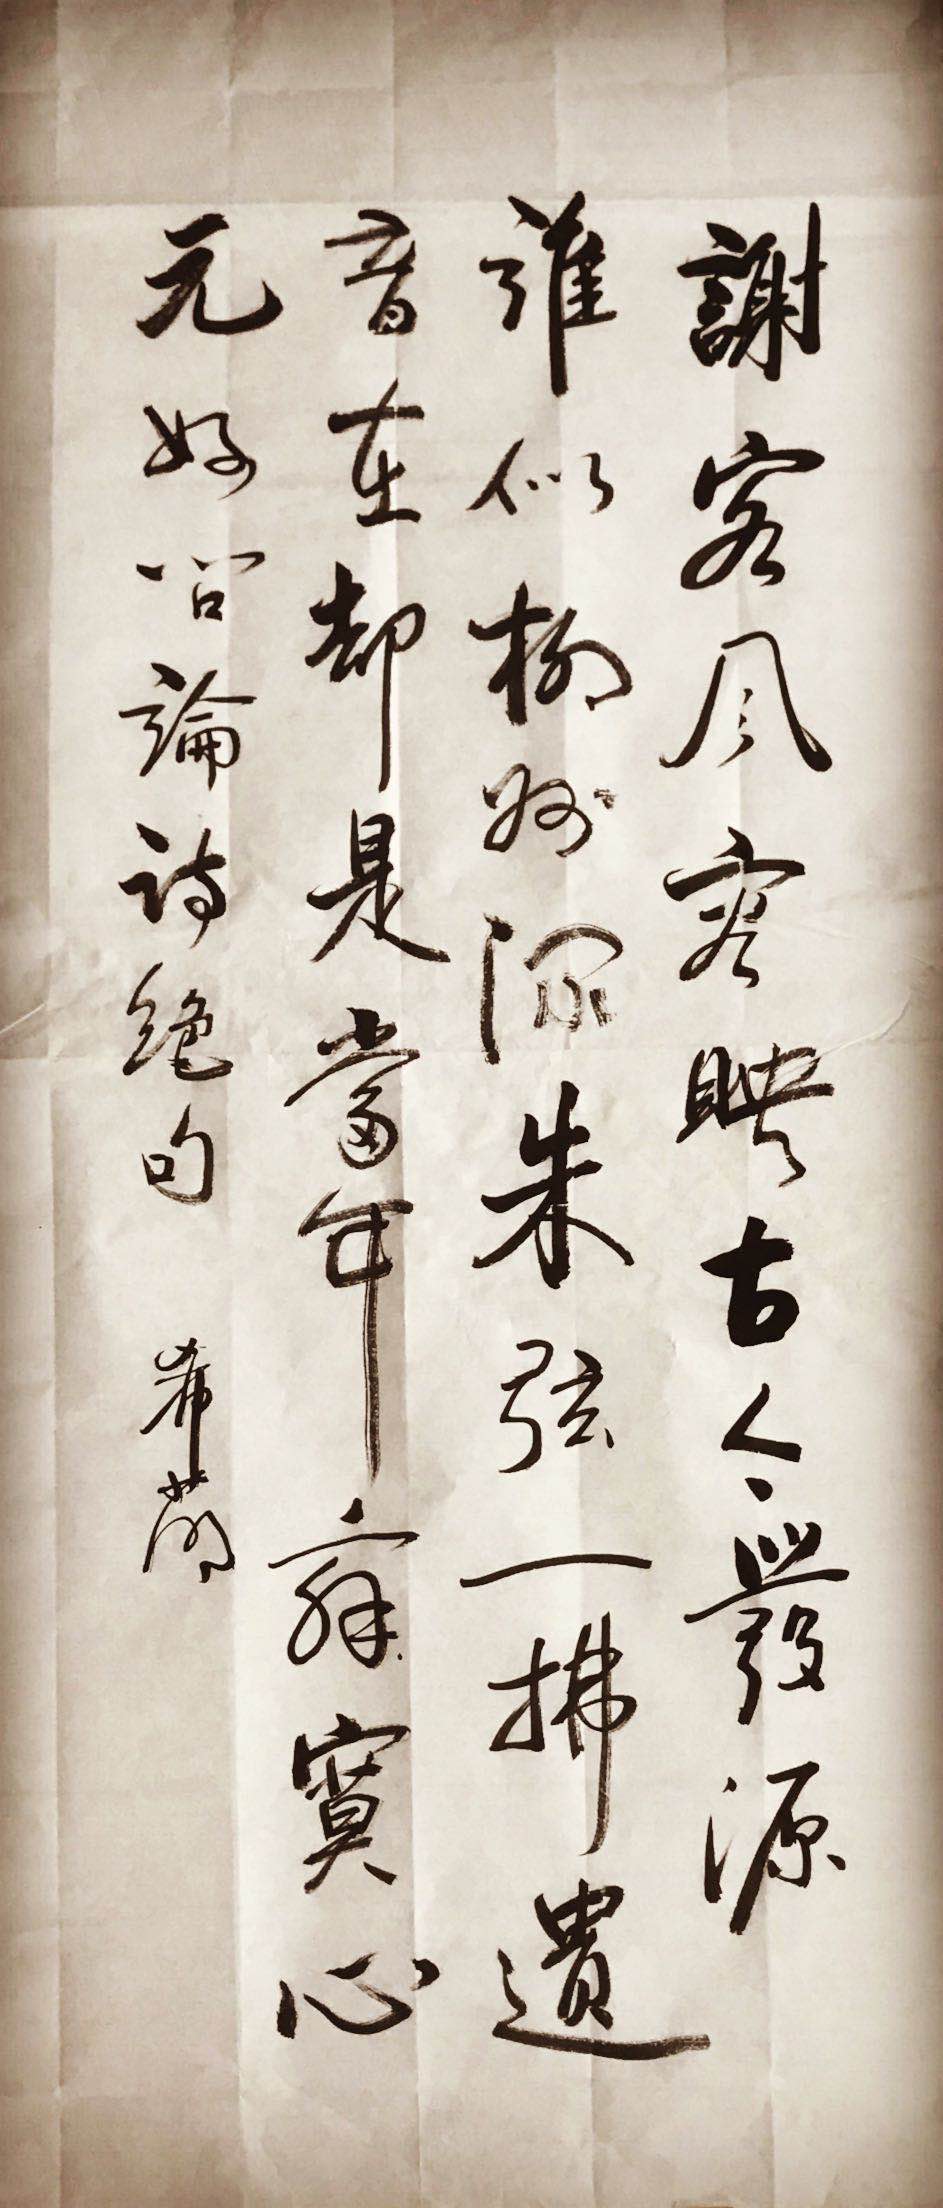 謝客風容映古今發源
誰似柳州深朱弦一拂遺
音在却是當年寂寞心
元好問論詩絕句 希